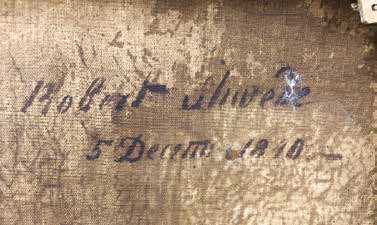 Robert Schwede
5 Decem 1810